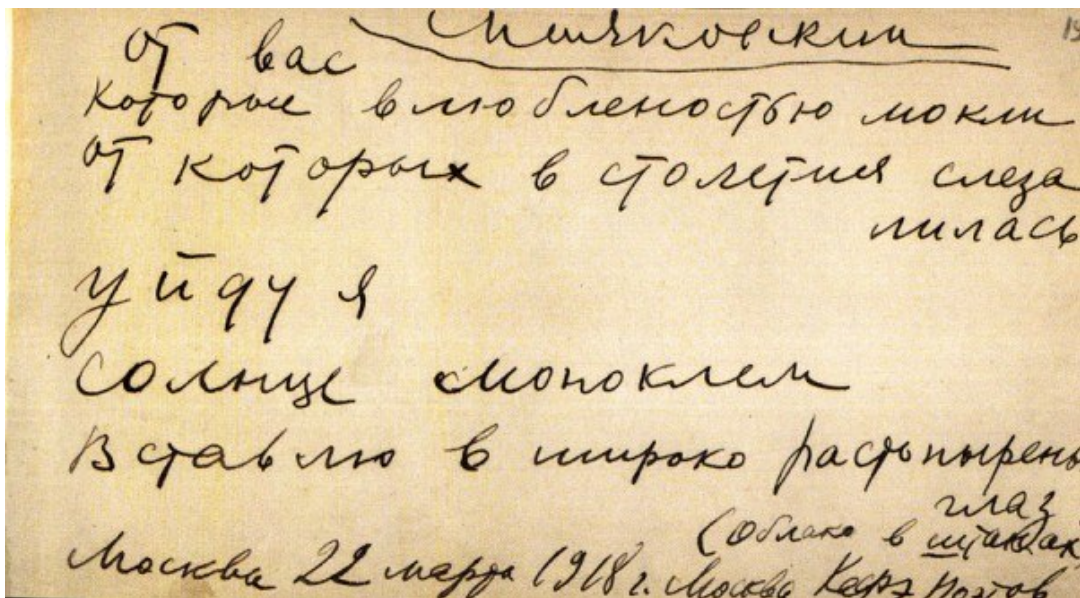 Маяковский
От вас
которые влюбленостью мокли
от которых в столетия слеза
лилась
уйду я
солнце моноклем
Вставлю в широко растопырены
глаз
(Облако в штанах
Москва 22 марта 1918 г. Москва Кафэ Поэтов